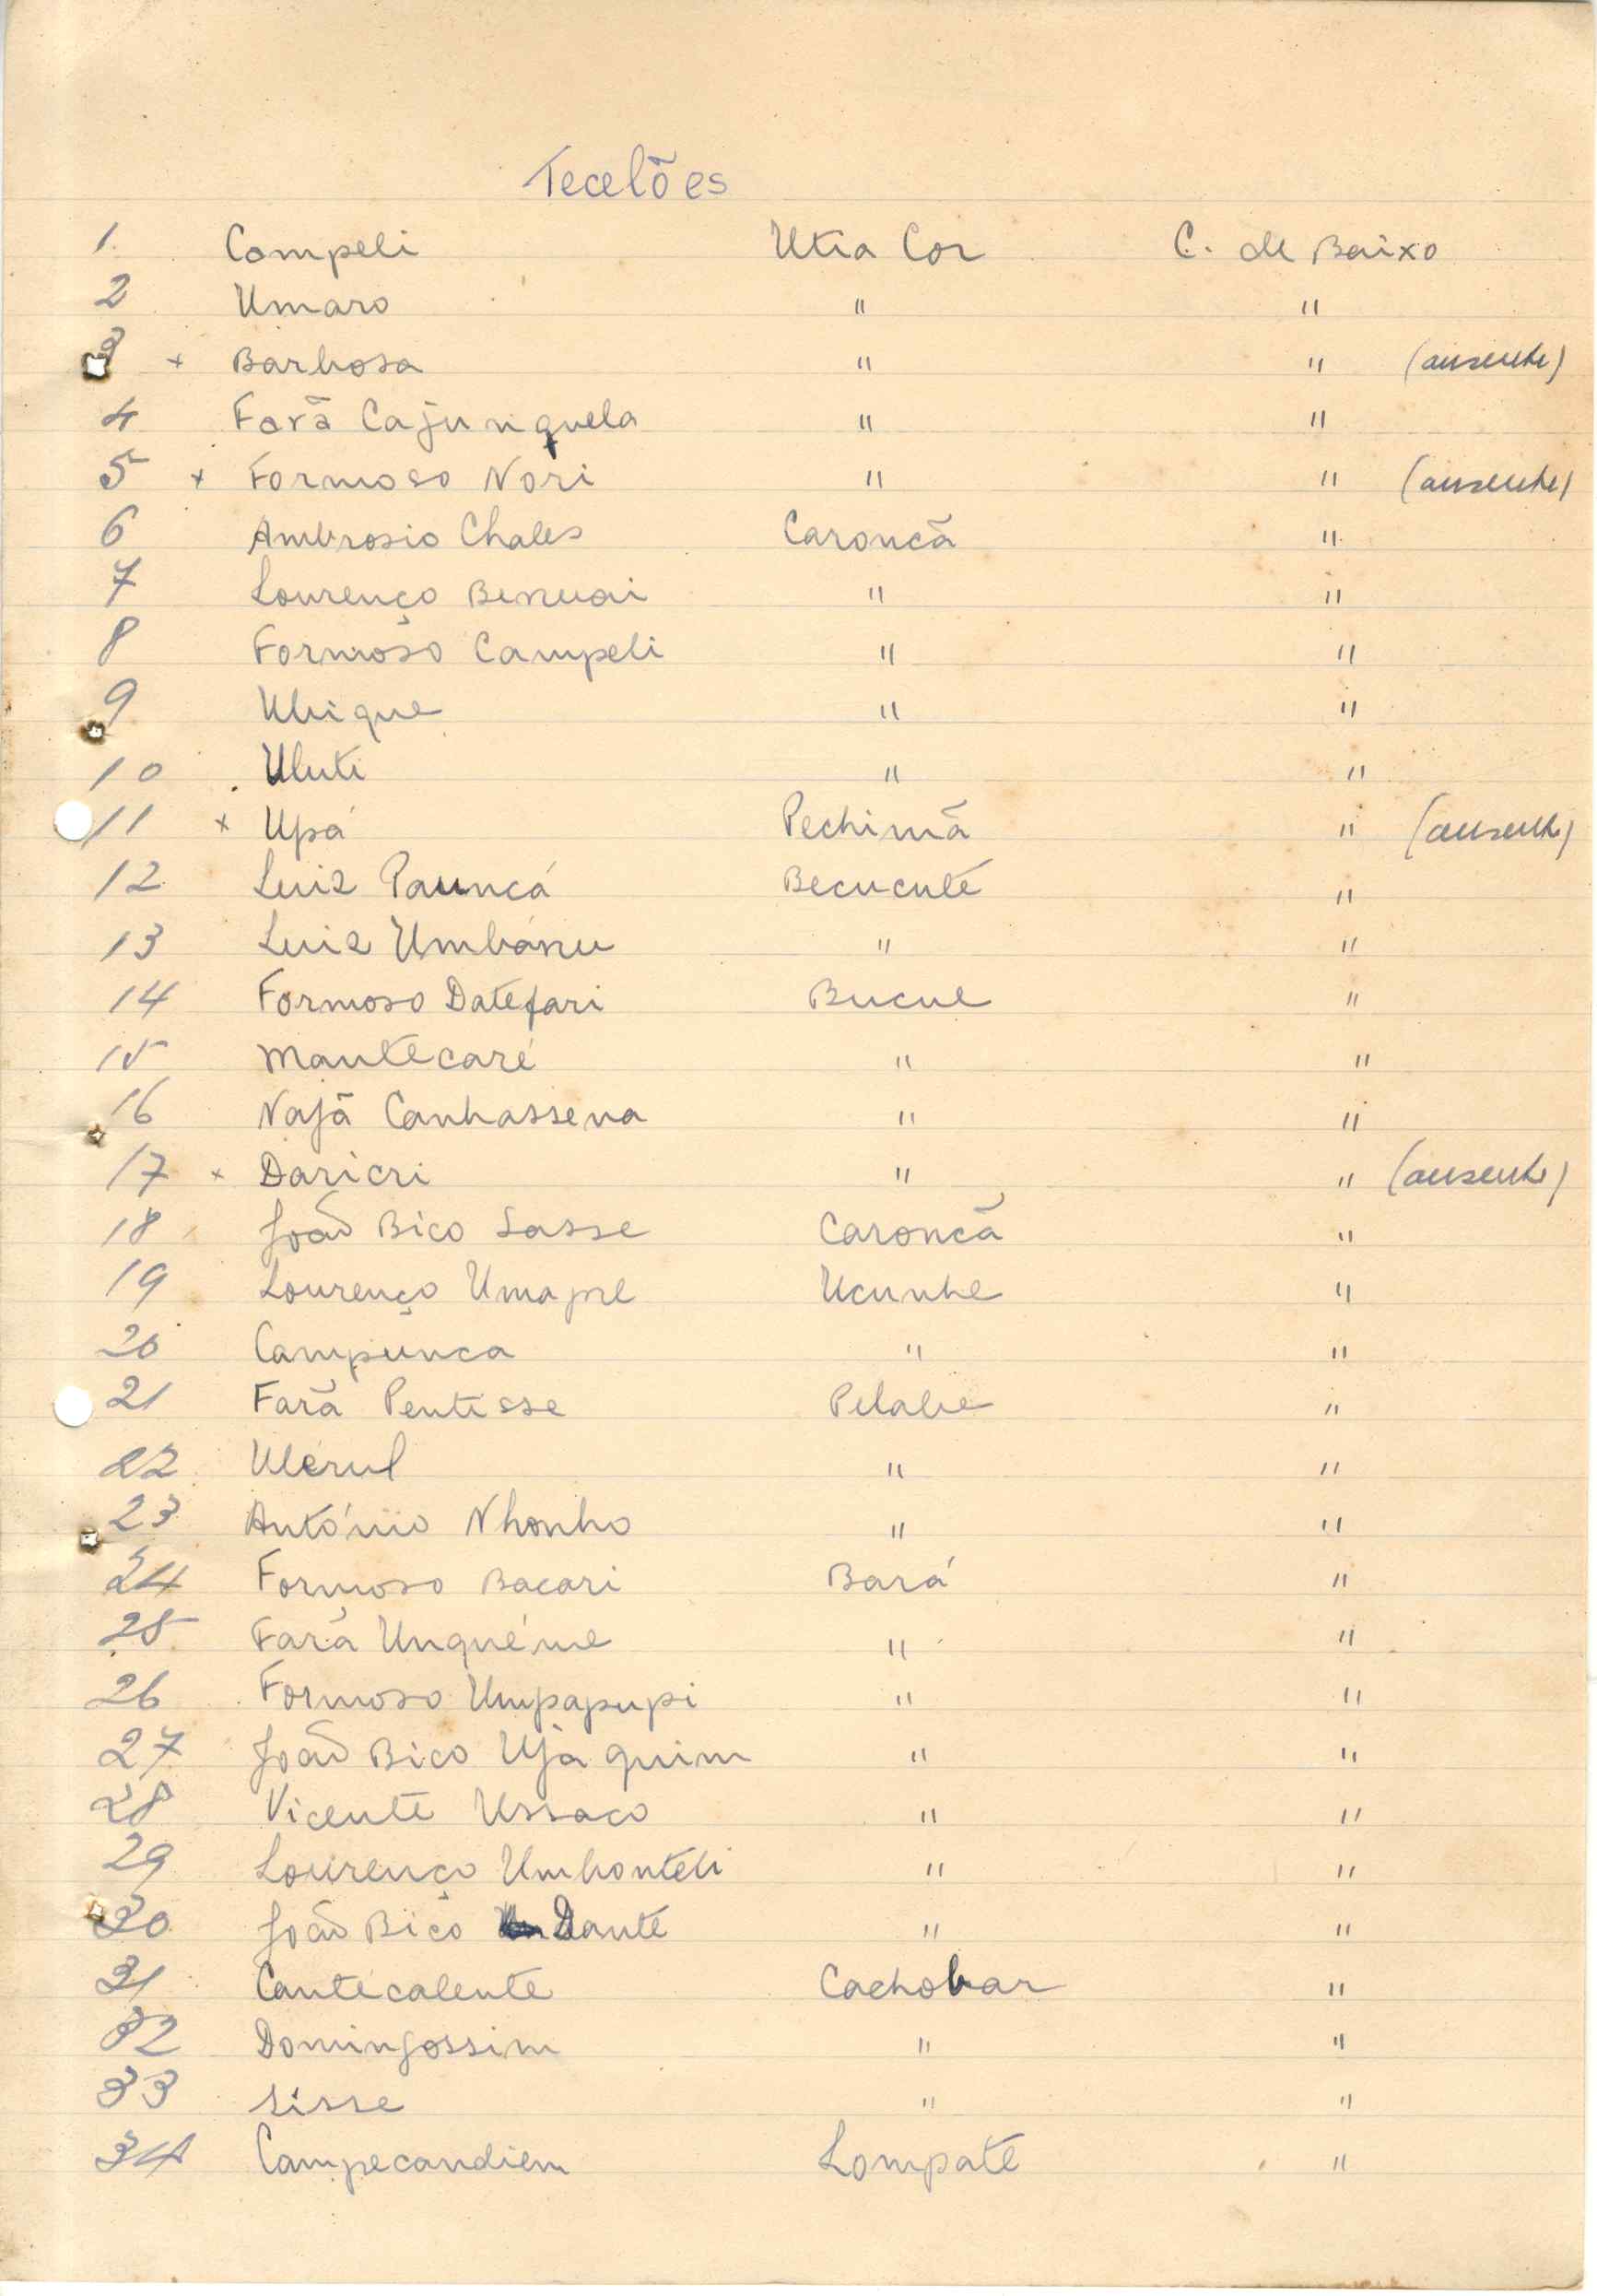 Tecelões
1. Campeli Utia Cor C. de Baixo
2 Umaro " "
3 x Barbosa " " (ausente)
4 Farã Cajunquela " "
5 x Formoso Nori " " (ausente)
6 Ambrosio Chales Caroncã "
7 Lourenço Benuai " "
8 Formoso Campeli " "
9 Ubique " "
10 Uluti " "
11 x Upá Pechimã " (ausente)
12 Luiz Pauncá Becucuté "
13 Luiz Umbánu " "
14 Formoso Datefari Bucul "
15 Mantecaré " "
16 Najã Canhassena " "
17 x Daricri " " (ausente)
18 João Bico Sasse Caroncã "
19 Lourenço Umapre Ucunhe "
20 Campunca " "
21 Farã Pentisse Pelabe "
22 Ulerul " "
23 António Nhonho " "
24 Formoso Bacari Bará "
25 Fara Unquéme " "
26 Formoso Umpapupi " "
27 João Bico Ujaquim " "
28 Vicente Ussaco " "
29 Lourenço Umhonteli " "
30 João Bico Dante " "
31 Cantecalente Cachobar "
32 Domingossim " "
33 Sisse " "
34 Campecandiem Lompate "